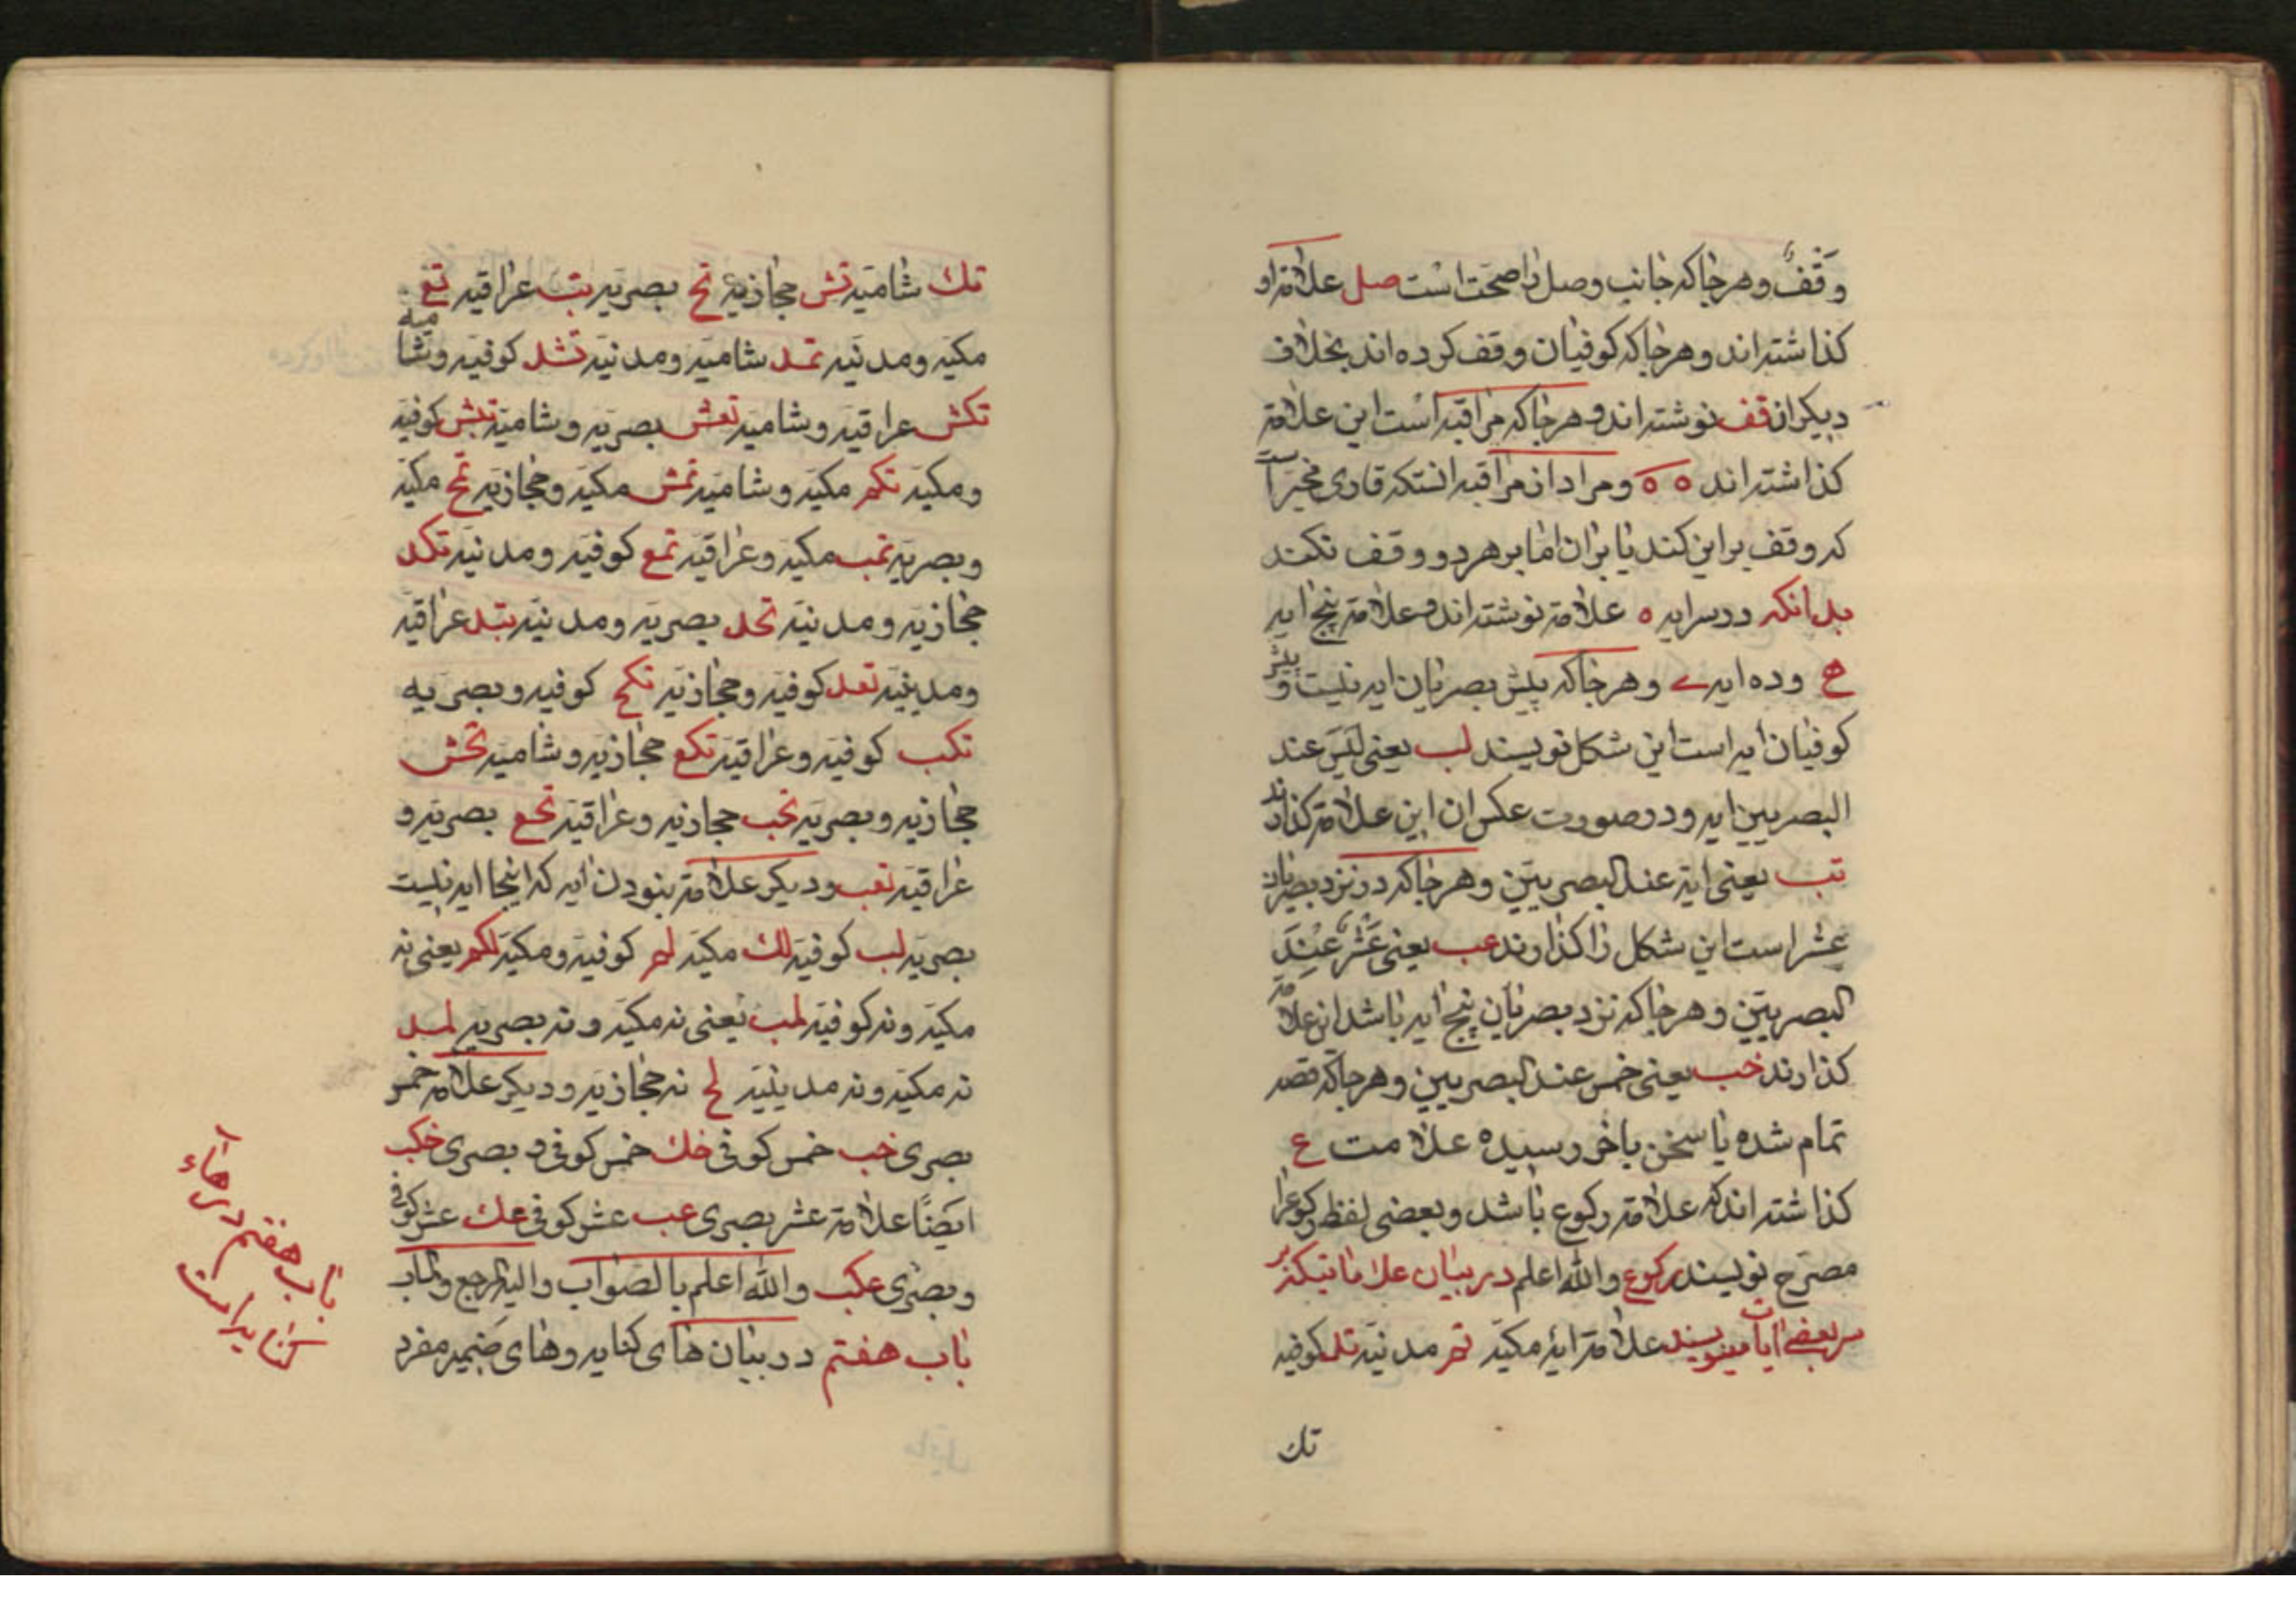 وَقْفٌ وهر جا که جانب وصل را صحت است صل علامة او
کذاشته اند وهر جا که کوفیان وقف کرده اند بخلاف
دیکران قف نوشته اند وهر جا که مراقبه است این علامة
کذاشته اند ه ه ومراد از مراقبه انستکه قاری مخیر است
که وقف بر این کند یا بران اما بر هر دو وقف نکند
بدانکه در سر ایه ه علامة نوشته اند وعلامة پنج ایه
ﻫ وده ایه ے وهر جا که پیش بصریان ایه نیست و پیش
کوفیان ایه است این شکل نویسند لب یعنی لَیسَ عند
البصریین ایه ودر صورت عکس ان این علامة کذارند
تب یعنی ایة عند البصریین وهر جا که در نزد بصریان
عشر است این شکل را کذارند عب یعنی عَشْرٌ عِنْدَ
البصریین وهر جا که نزد بصریان پنج ایه باشد ان علامة
کذارند خب یعنی خمس عند البصریین وهر جا که قصه
تمام شده یا سخن باخر رسیده علامت ع
کذاشته اند که علامة رکوع باشد وبعضی لفظ رکوع را
مصرّح نویسند رکوع والله اعلم در بیان علاماتیکه بر
سر بعضے ایات مینویسند علامة ایۀ مکیّه تم مدنیّه تد کوفیه
تك
تك شامیّه تش حجازیه تح بصریّه تب عراقیه تع
مکیّه ومدنیّه تمد شامیّه ومدنیّه تشد کوفیّه وشامیه
تکش عراقیّه وشامیّه تعش بصریّه وشامیّه تبش کوفیّه
ومکیّه تکم مکیّه وشامیّه تمش مکیّه وحجازیّه تمح مکیّه
وبصریّه تمب مکیّه وعراقیّه تمع کوفیّه ومدنیّه تکد
حجازیّه ومدنیّه تحد بصریّه ومدنیّه تبد عراقیّه
ومدینیّه تعد کوفیّه وحجازیّه تکح کوفیه وبصریه
تکب کوفیّه وعراقیّه تکع حجازیّه وشامیّه تحش
حجازیه وبصریّه تحب حجازیه وعراقیّه تحع بصریّه و
عراقیّه تعب ودیکر علامة نبودن ایه که اینجا ایه نیست
بصریّه لب کوفیّه لك مکیّه لم کوفیّه ومکیّه لکم یعنی نه
مکیّه ونه کوفیّه لمب یعنی نه مکیّه ونه بصریّه لمد
نه مکیّه ونه مدینیّه لح نه حجازیّه ودیکر علامة خمس
بصری خب خمس کوفی خك خمس کوفی و بصری خکب
ایضًا علامة عشر بصری عب عشر کوفی عك عشر کوفی
وبصری عکب والله اعلم بالصواب والیه المرجع والماب
باب هفتم در بیان های کنایه وهای ضمیر مفرد
باب هفتم در هاء
کنایه است